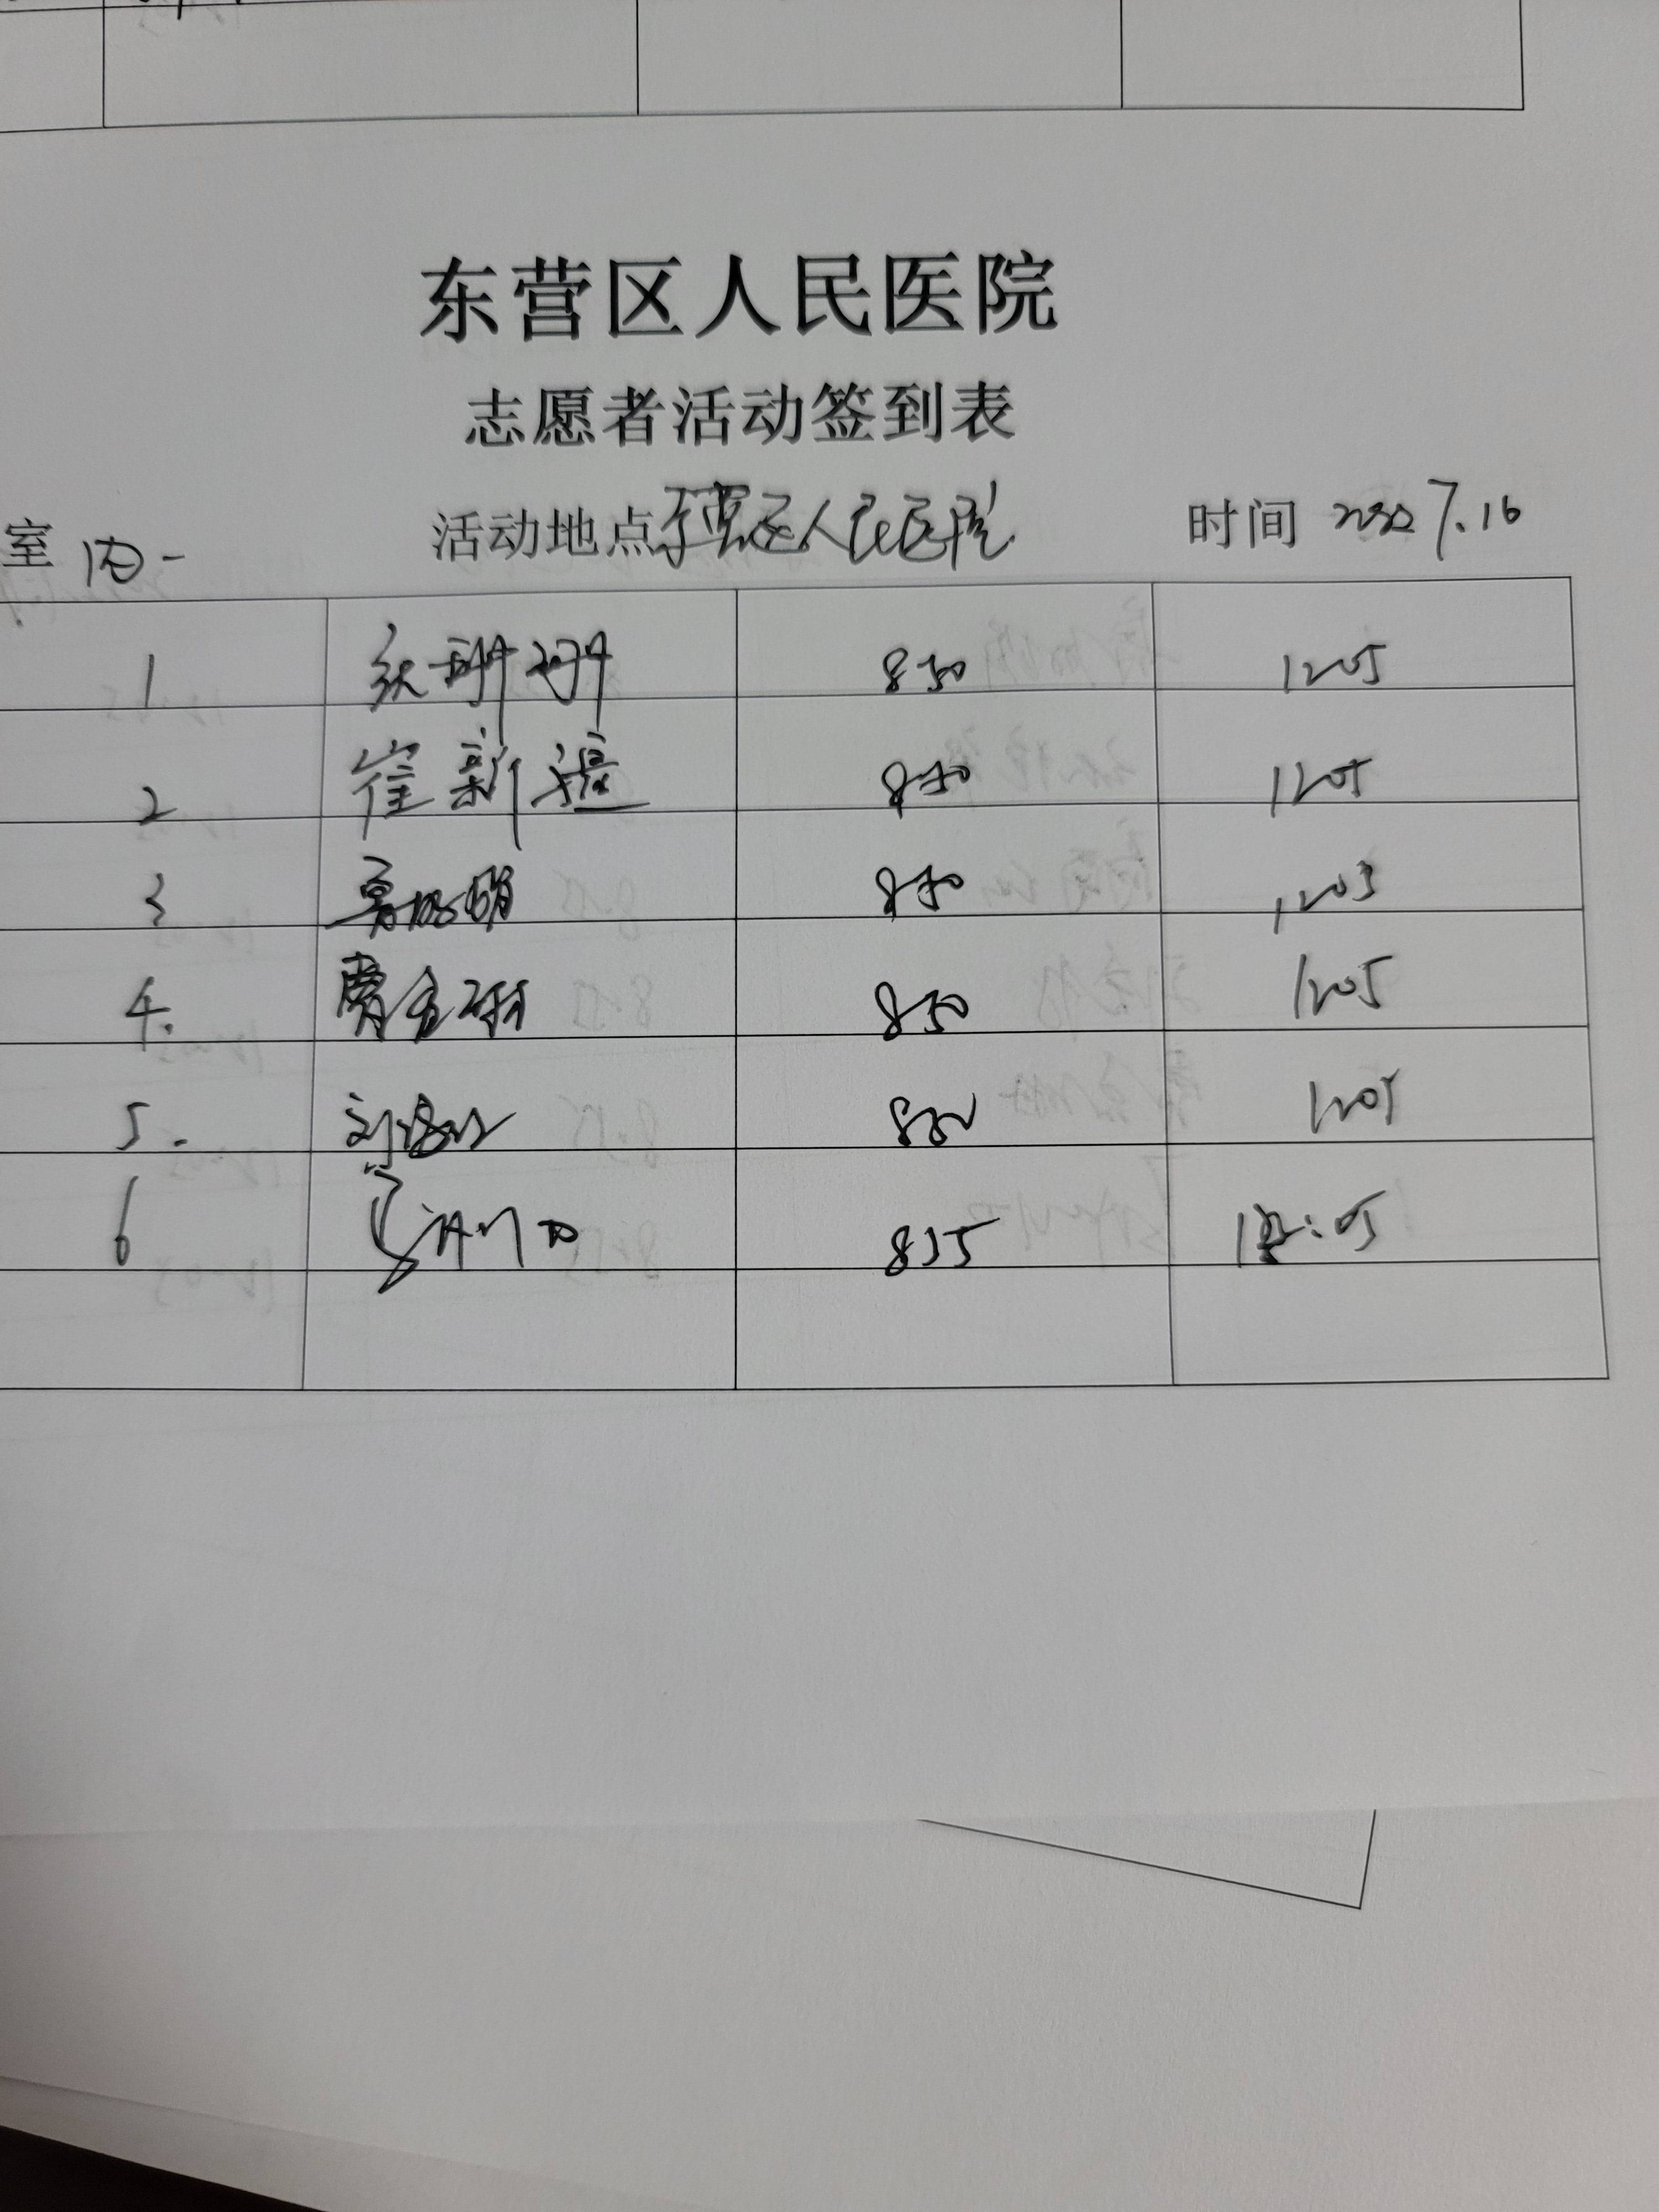 东营区人民医院
志愿者活动签到表
室 内一 活动地点 东营区人民医院 时间 2022 7.16
1 850 1205
2 崔新疆 850 1205
3 850 1203
4. 850 1205
5. 刘 850 1205
6 855 12:05